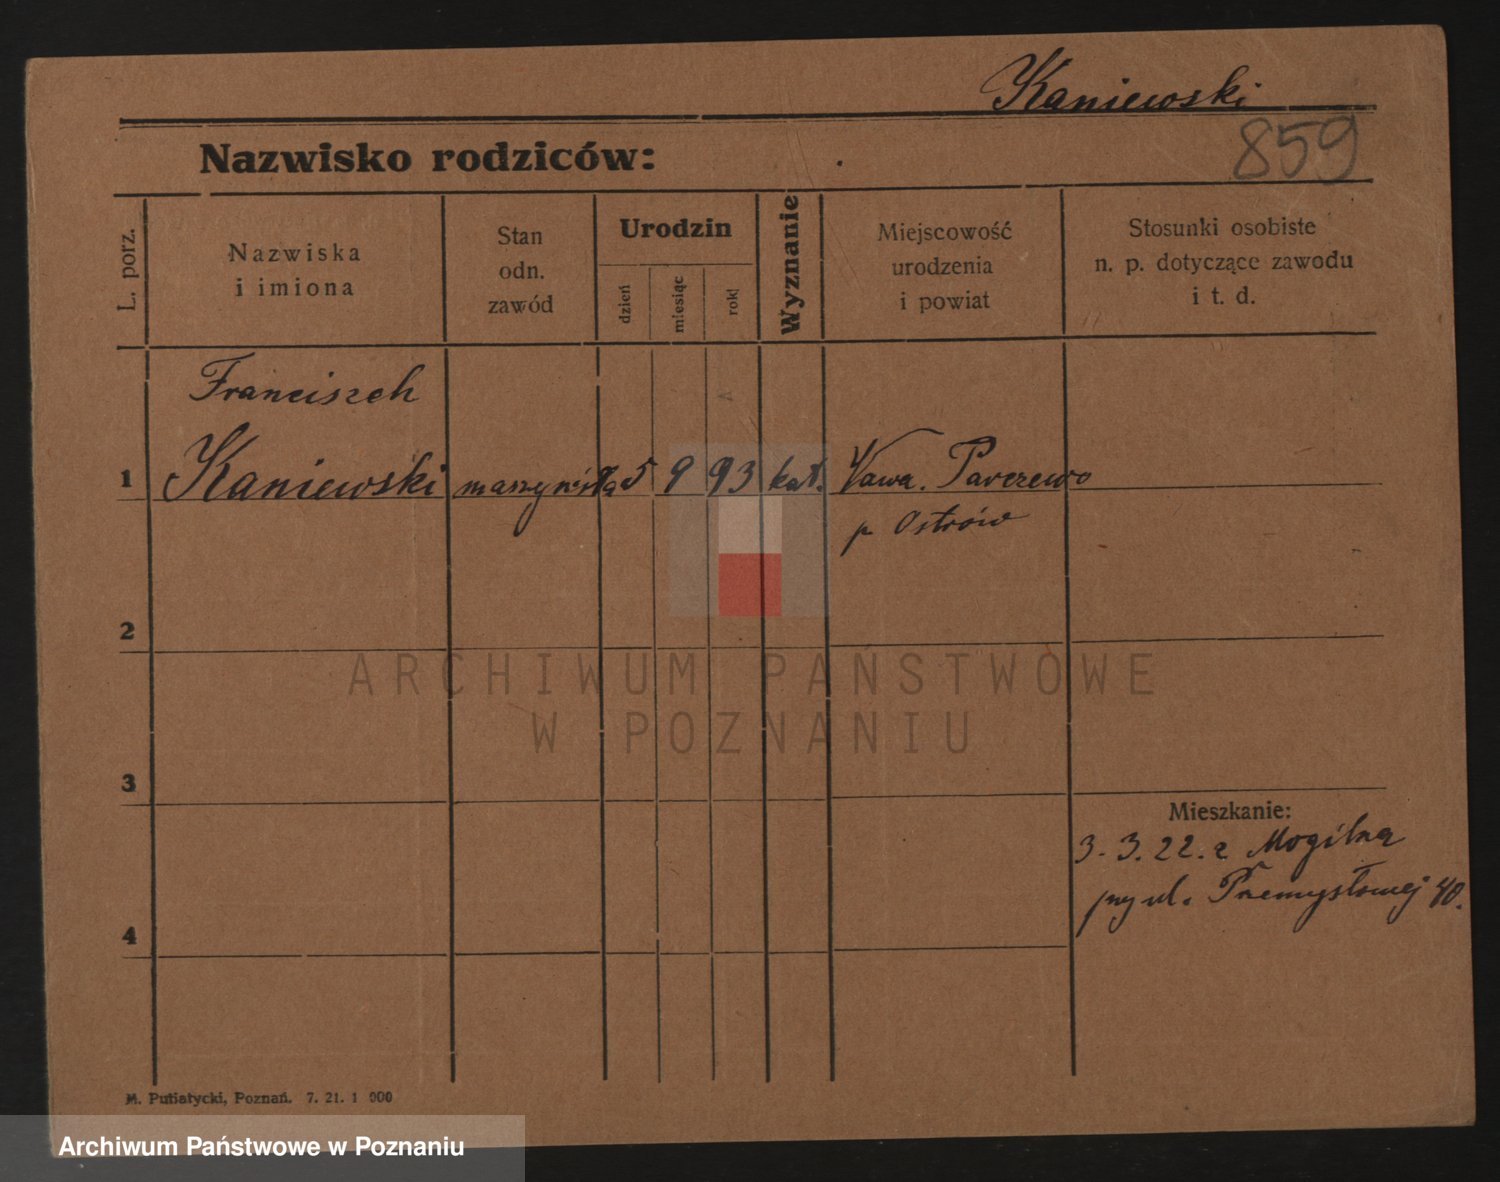 Kaniewski
859
Nazwisko rodziców:
L. porz.
Nazwiska
i imiona
Stan
odn.
zawód
Urodzin
dzień
miesiąc
rok
Wyznanie
Miejscowość
urodzenia
i powiat
Stosunki osobiste
n. p. dotyczące zawodu
i t. d.
Franciszek
1 Kaniewski maszynista 5 9 93 kat. Parczewo
p Ostrów
2
ARCHIWUM PAŃSTWOWE
W POZNANIU
3
Mieszkanie:
3. 3. 22. z Mogilna
przy ul. Przemysłowej 40.
4
M. Putiatycki, Poznań. 7. 21. 1 000
Archiwum Państwowe w Poznaniu